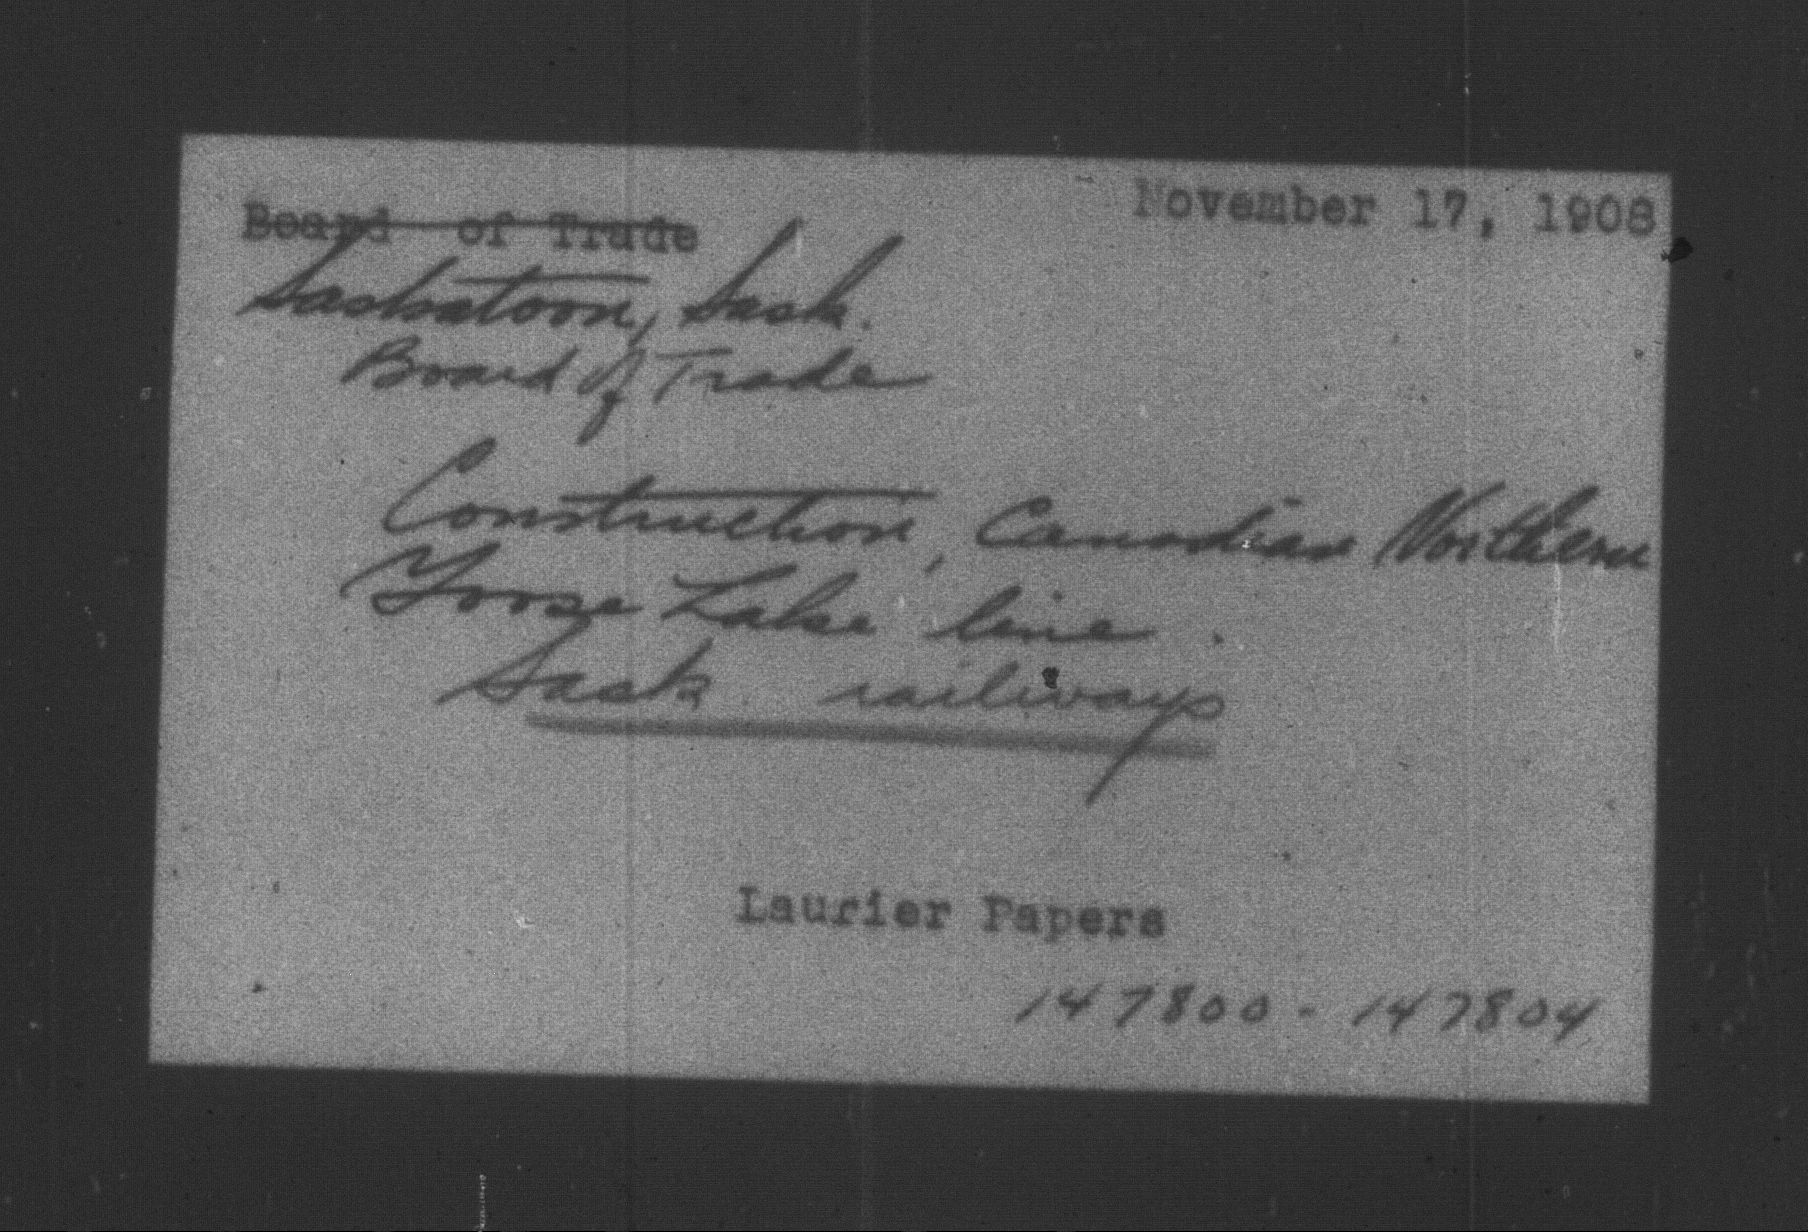 November 17, 1908
Board of Trade
Saskatoon, Sask.
Board of Trade
Construction, Canadian Northern
Goose Lake line.
Sask. railways
Laurier Papers
147800 - 147804